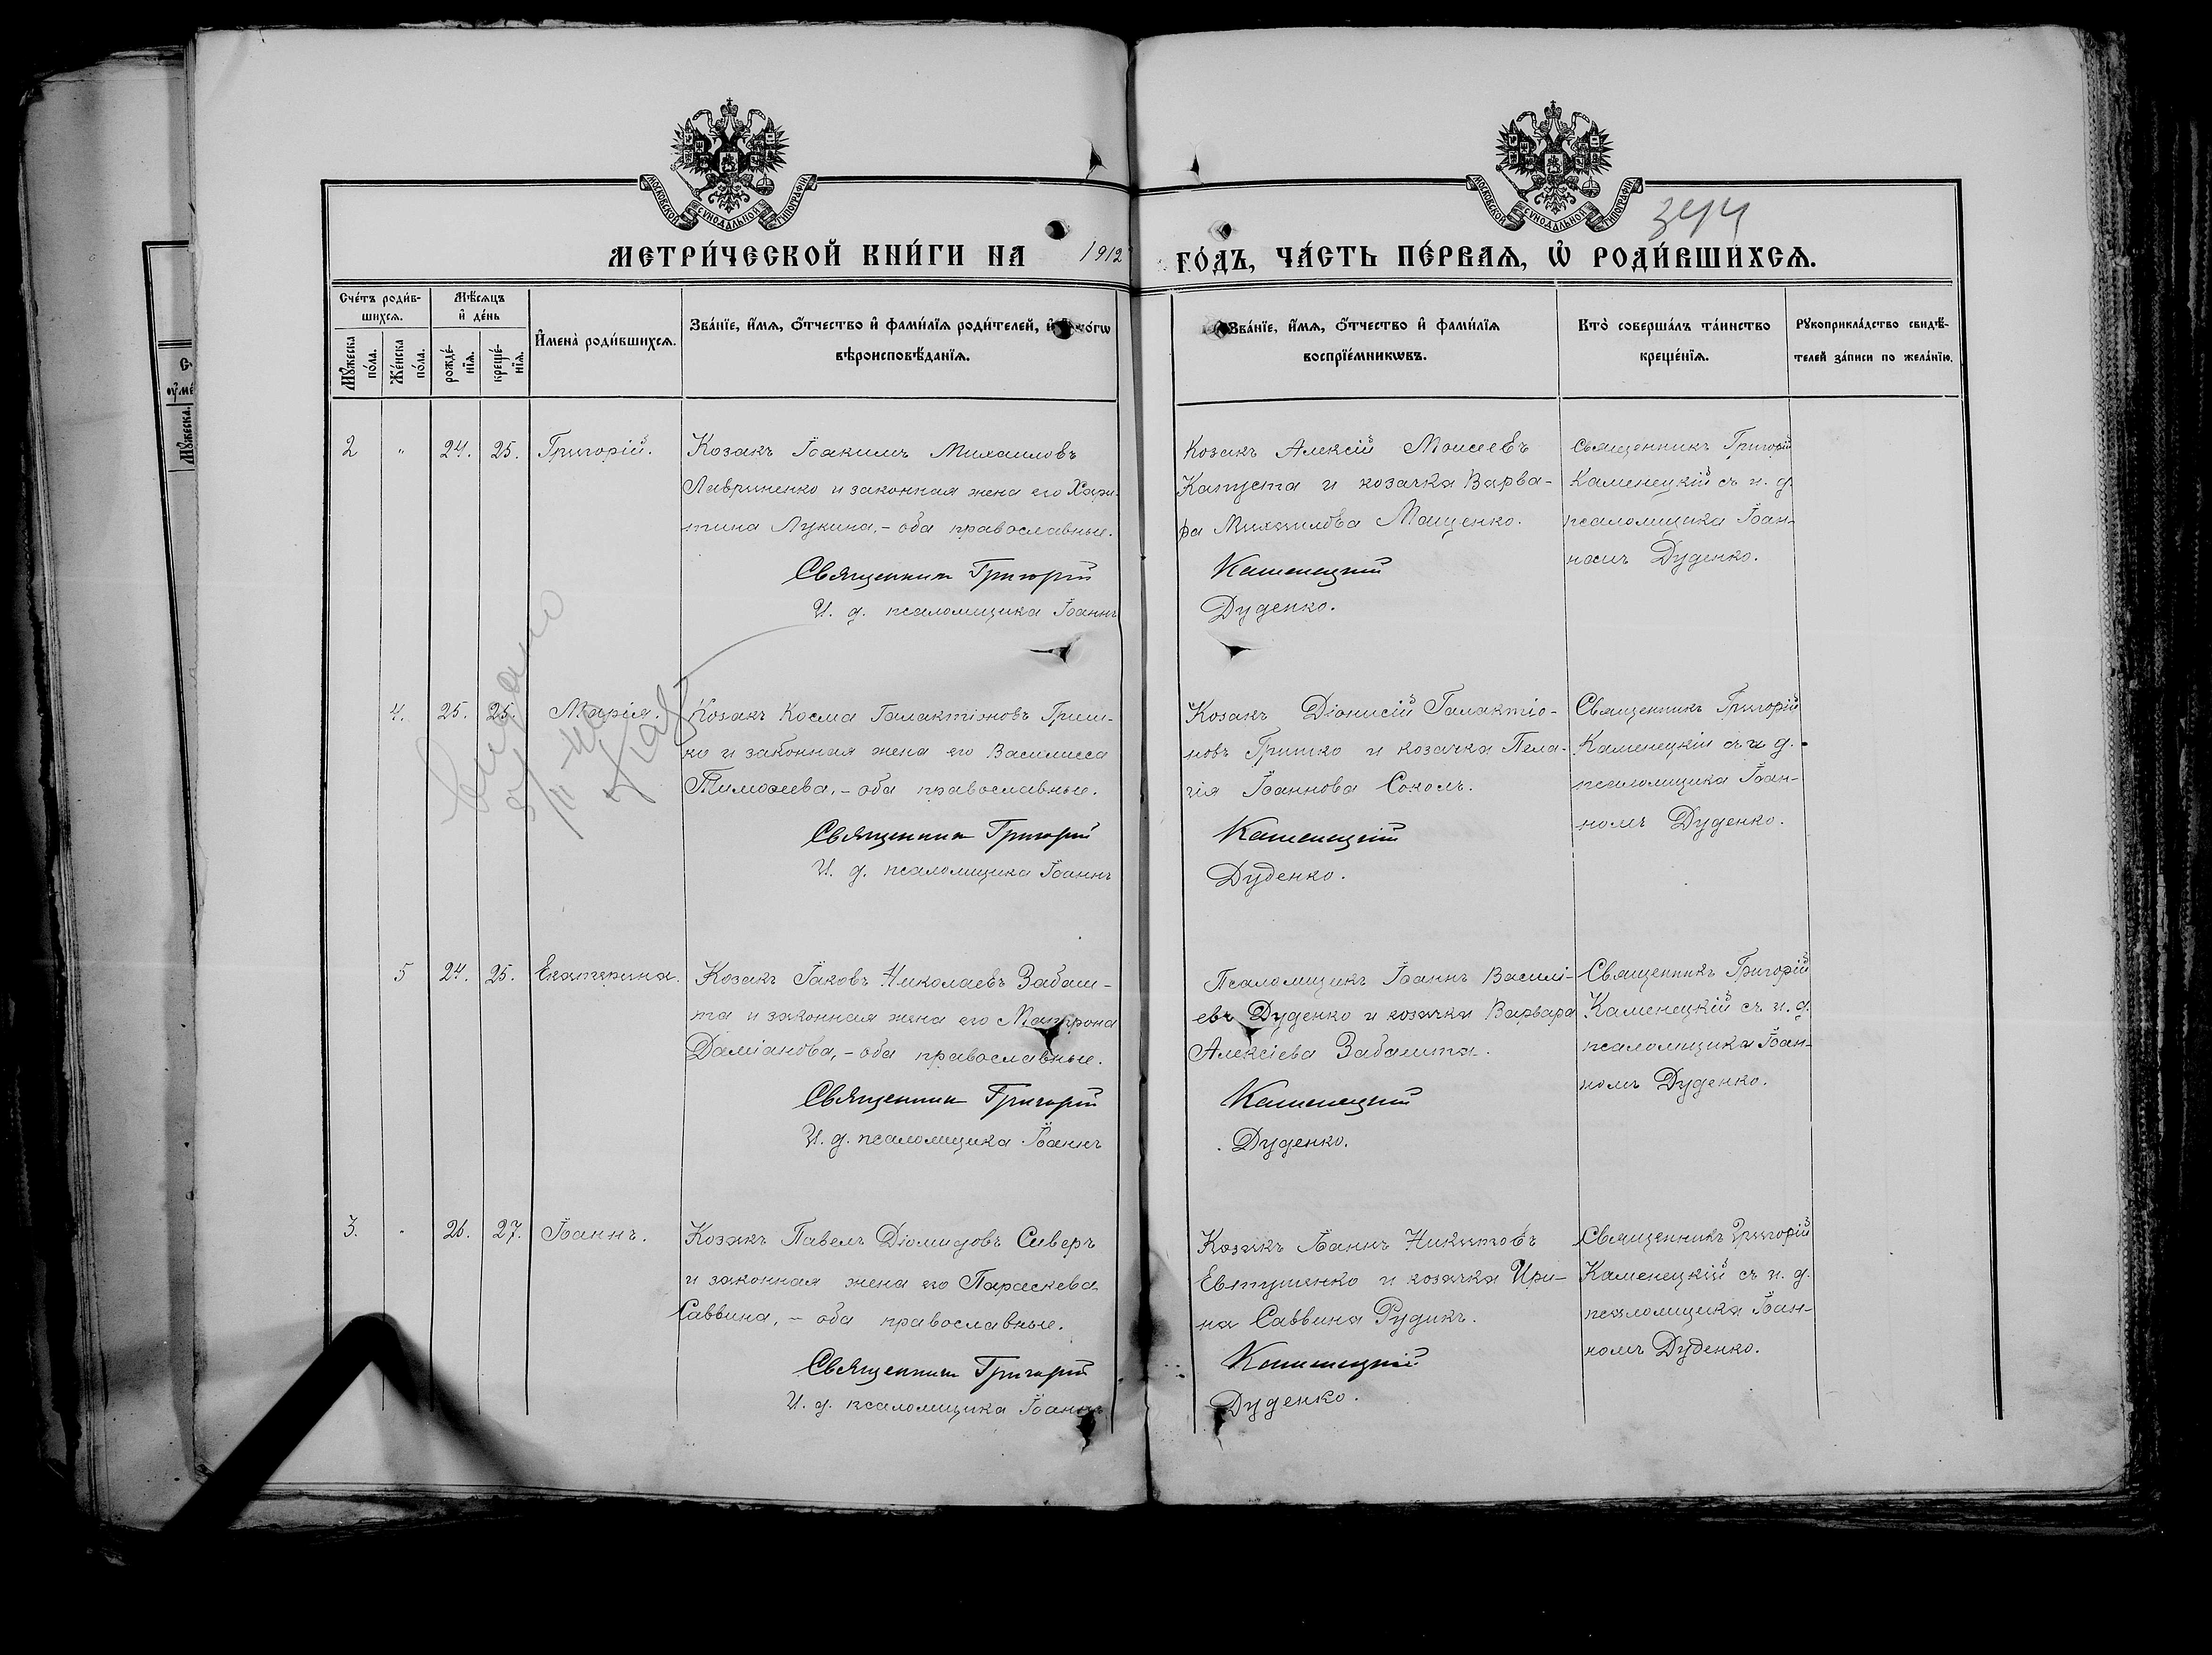 МОСКОВСКОЙ СѴНОДАЛЬНОЙ ТИПОГРАФІИ
МОСКОВСКОЙ СѴНОДАЛЬНОЙ ТИПОГРАФІИ
344
МЕТРИ́ЧЕСКОЙ КНИ́ГИ НА 1912 ГО́ДЪ, ЧА́СТЬ ПЕ́РВАѦ, Ѡ҆ РОДИ́ВШИХСѦ.
Сче́тъ роди́в-
шихсѧ.
Мꙋ́жеска по́ла.
Же́нска по́ла.
Мѣ́сѧцъ
и҆ де́нь
рожде́-
нїѧ.
креще́-
нїѧ.
И҆мена̀ роди́вшихсѧ.
Зва́нїе, и҆́мѧ, ѻ҆́тчество и҆ фами́лїѧ роди́телей, и҆
вѣроисповѣ́данїѧ.
Зва́нїе, и҆́мѧ, ѻ҆́тчество и҆ фами́лїѧ
воспрїе́мникѡвъ.
Кто̀ соверша́лъ та́инство
креще́нїѧ.
Рꙋкоприкла́дство свидѣ́-
телей за́писи по жела́нїю.
2 " 24. 25. Григорій.
Козакъ Іоакимъ Михаиловъ
Лавриненко и законная жена его Хари-
тина Лукина, – оба православные.
Священникъ Григорій
И. д. псаломщика Іоаннъ
Козакъ Алексій Моисеевъ
Капуста и козачка Варва-
ра Михаилова Мащенко.
Каменецкій
Дуденко.
Священникъ Григорій
Каменецкій съ и. д.
псаломщика Іоан-
номъ Дуденко.
4. 25. 25. Марія.
Козакъ Косма Галактіоновъ Гриш-
ко и законная жена его Василисса
Тимоѳеева, – оба православные.
Священникъ Григорій
И. д. псаломщика Іоаннъ
Козакъ Діонисій Галактіо-
новъ Гришко и козачка Пела-
гія Іоаннова Соколъ.
Каменецкій
Дуденко.
Священникъ Григорій
Каменецкій съ и д.
псаломщика Іоан-
номъ Дуденко.
Выдано
5 24. 25. Екатерина.
Козакъ Іаковъ Николаевъ Забаш-
та и законная жена его Матрона
Даміанова, – оба православные.
Священникъ Григорій
И. д. псаломщика Іоаннъ
Псаломщикъ Іоаннъ Василі-
евъ Дуденко и козачка Варвара
Алексіева Забашта.
Каменецкій
Дуденко.
Священникъ Григорій
Каменецкій съ и. д.
псаломщика Іоан-
номъ Дуденко.
3. " 26. 27. Іоаннъ.
Козакъ Павелъ Діомидовъ Сиверъ
и законная жена его Параскева
Саввина, – оба православные.
Священникъ Григорій
И. д. псаломщика Іоаннъ
Козакъ Іоаннъ Никитовъ
Евтушенко и козачка Ири-
на Саввина Рудикъ.
Каменецкій
Дуденко.
Священникъ Григорій
Каменецкій съ и. д.
псаломщика Іоан-
номъ Дуденко.